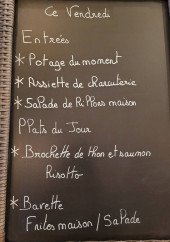 Ce Vendredi
Entrées
* Potage du moment
* Assiette de charcuterie
* Salade de Ribbes maison
Plats du Jour
* Brochette de thon et saumon
Risotto
* Bavette
Frites maison / Salade